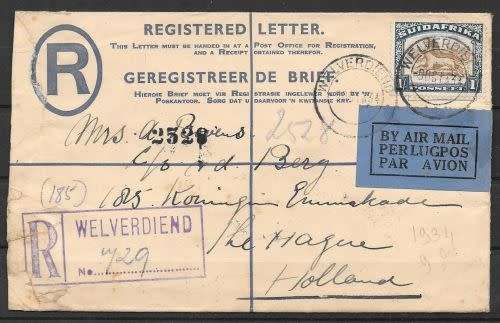 REGISTERED LETTER.
THIS LETTER MUST BE HANDED IN AT A POST OFFICE FOR REGISTRATION,
AND A RECEIPT OBTAINED THEREFOR.
GEREGISTREERDE BRIEF.
HIERDIE BRIEF MOET VIR REGISTRASIE INGELEWER WORD BY 'N
POSKANTOOR. SORG DAT U DAARVOOR 'N KWITANSIE KRY.
R
SUIDAFRIKA
WELVERDIEND
WELVERDIEND
1
POSSEEL
1
BY AIR MAIL
PER LUGPOS
PAR AVION
Mrs. A.
2528
2528
c/o v. d. Berg.
185 Koningin Emmakade
The Hague
Holland
(185)
R
WELVERDIEND
No. 729
1934